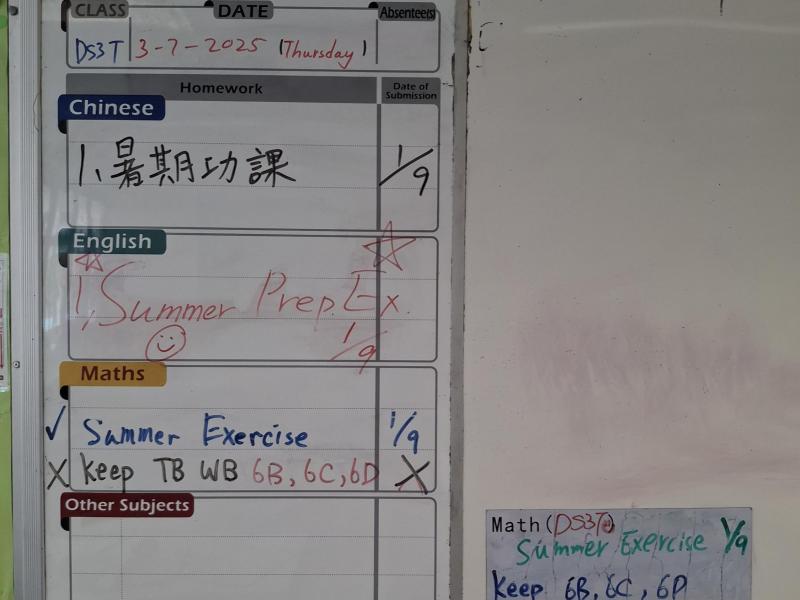 CLASS DATE Absentee(s)
DS3T 3-7-2025 (Thursday)
Homework Date of Submission
Chinese
1、暑期功課 1/9
English
1, Summer Prep. Ex.
1/9
Maths
✓ Summer Exercise 1/9
X Keep TB WB 6B, 6C, 6D X
Other Subjects
Math (DS3T)
Summer Exercise 1/9
Keep 6B, 6C, 6D